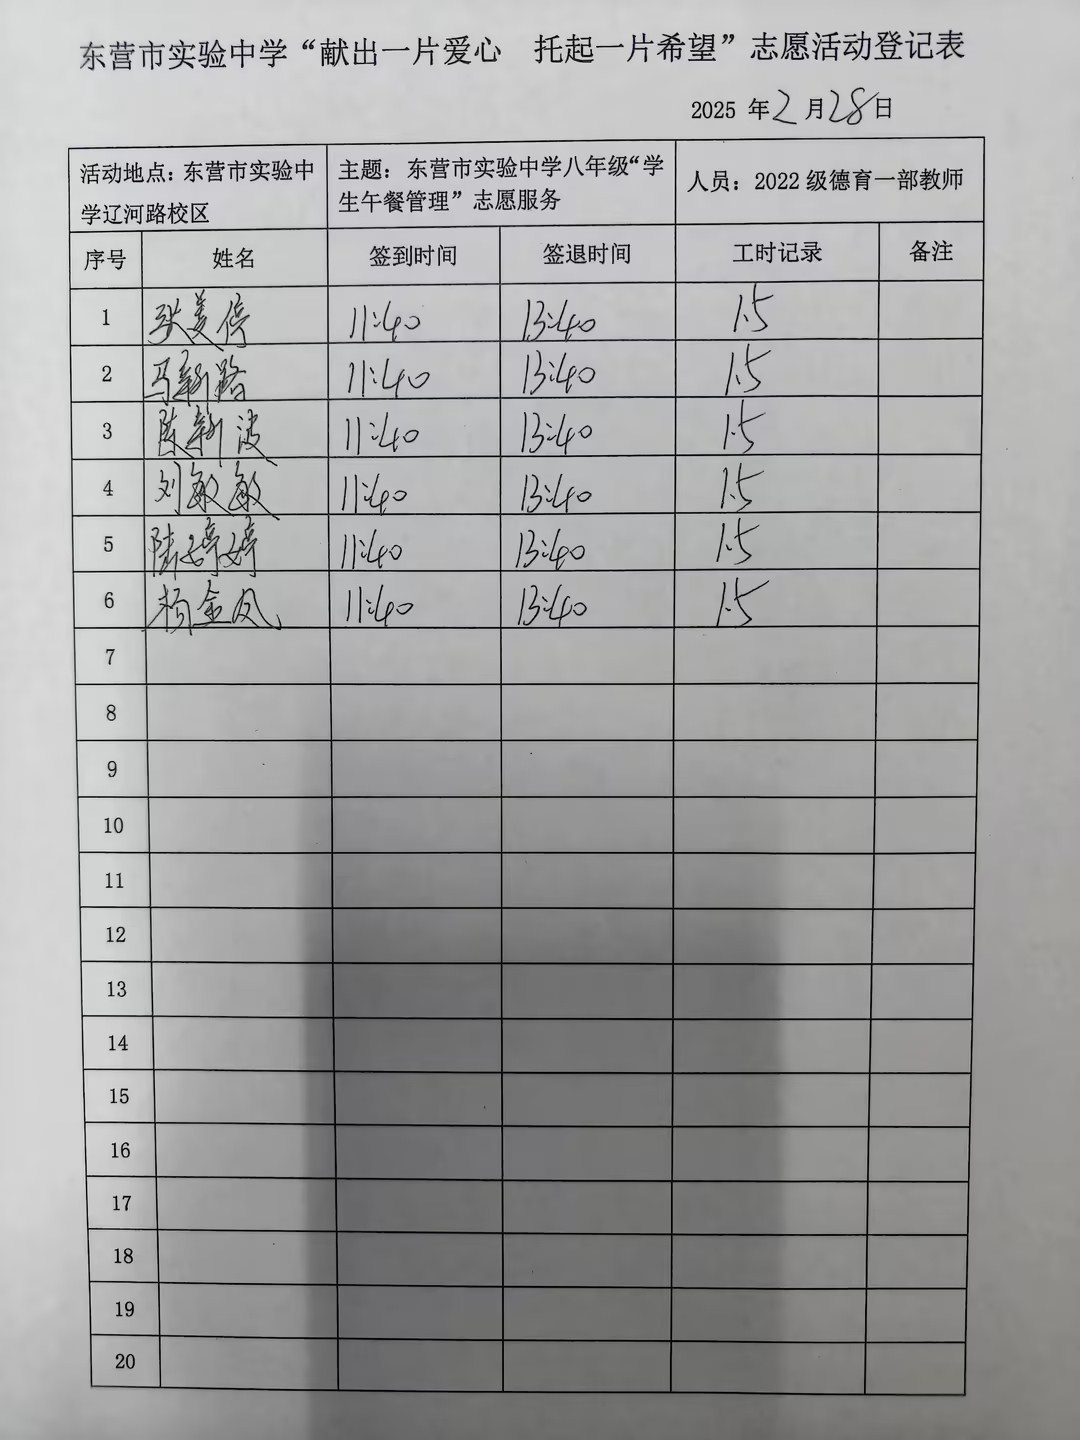 东营市实验中学“献出一片爱心 托起一片希望”志愿活动登记表
2025 年2月28日
活动地点：东营市实验中学辽河路校区 主题：东营市实验中学八年级“学生午餐管理”志愿服务 人员：2022 级德育一部教师
序号 姓名 签到时间 签退时间 工时记录 备注
1 张美停 11:40 13:40 1.5
2 马新路 11:40 13:40 1.5
3 陈新波 11:40 13:40 1.5
4 刘敏敏 11:40 13:40 1.5
5 陆婷婷 11:40 13:40 1.5
6 杨金凤 11:40 13:40 1.5
7
8
9
10
11
12
13
14
15
16
17
18
19
20